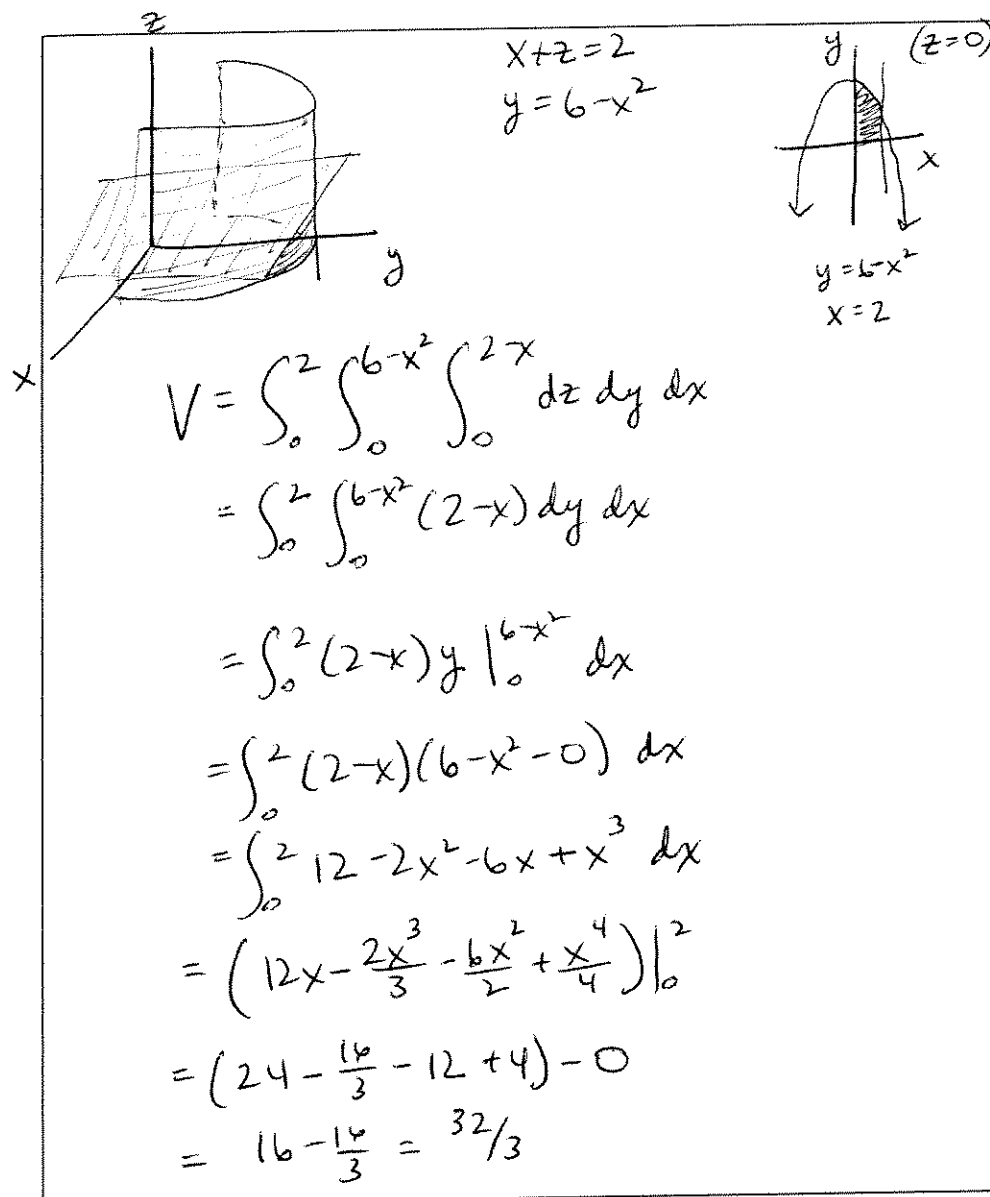 z
x+z=2
y=6-x²
y (z=0)
x
y=6-x²
x=2
y
x
V = ∫₀² ∫₀^(6-x²) ∫₀^(2-x) dz dy dx
= ∫₀² ∫₀^(6-x²) (2-x) dy dx
= ∫₀² (2-x) y |₀^(6-x²) dx
= ∫₀² (2-x)(6-x²-0) dx
= ∫₀² 12-2x²-6x+x³ dx
= (12x - 2x³/3 - 6x²/2 + x⁴/4)|₀²
= (24 - 16/3 - 12 + 4) - 0
= 16 - 16/3 = 32/3